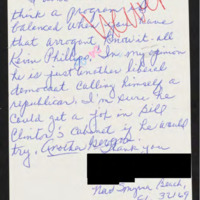 think a program is
balanced when you have
that arrogant know it all
Kevin Phillips. In my opinion
he is just another liberal
democrat calling himself a
republican. I'm sure he
could get a job in Bill
Clinton's cabinet if he would
try. Another
Thank you
New Smyrna Beach,
FL 32169